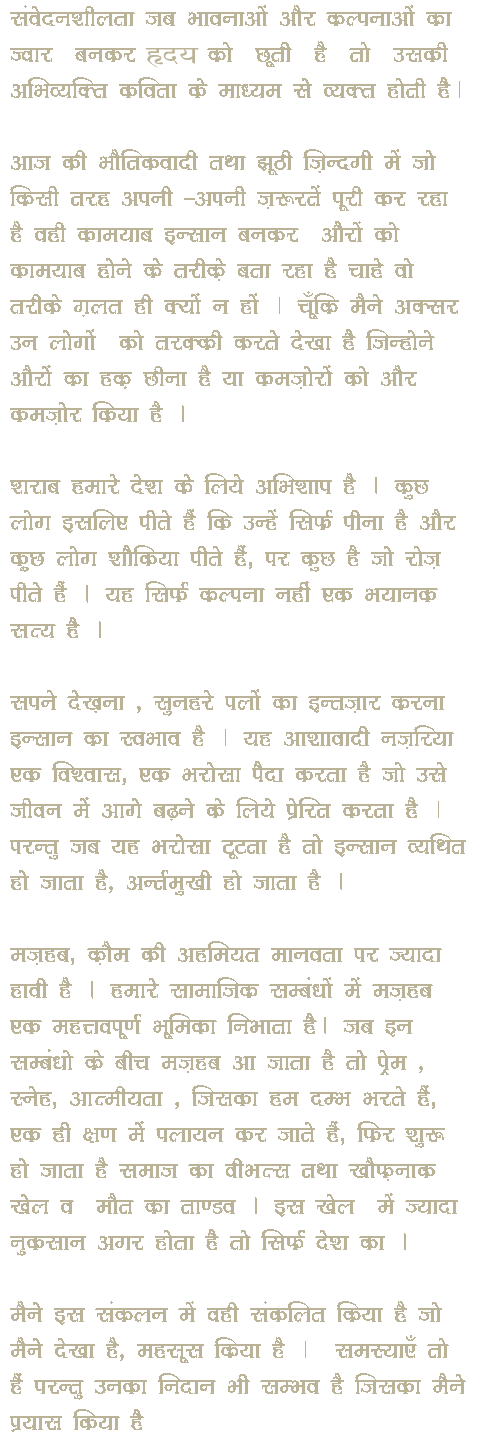 संवेदनशीलता जब भावनाओं और कल्पनाओं का
ज्वार बनकर हृदय को छूती है तो उसकी
अभिव्यक्ति कविता के माध्यम से व्यक्त होती है।
आज की भौतिकवादी तथा झूठी ज़िन्दगी में जो
किसी तरह अपनी –अपनी ज़रूरतें पूरी कर रहा
है वही कामयाब इन्सान बनकर औरों को
कामयाब होने के तरीक़े बता रहा है चाहे वो
तरीके ग़लत ही क्यों न हों । चूँकि मैने अक्सर
उन लोगों को तरक्की करते देखा है जिन्होने
औरों का हक़ छीना है या कमज़ोरों को और
कमज़ोर किया है ।
शराब हमारे देश के लिये अभिशाप है । कुछ
लोग इसलिए पीते हैं कि उन्हें सिर्फ़ पीना है और
कुछ लोग शौकिया पीते हैं, पर कुछ है जो रोज़
पीते हैं । यह सिर्फ़ कल्पना नहीं एक भयानक
सत्य है ।
सपने देख़ना , सुनहरे पलों का इन्तज़ार करना
इन्सान का स्वभाव है । यह आशावादी नज़रिया
एक विश्वास, एक भरोसा पैदा करता है जो उसे
जीवन में आगे बढ़ने के लिये प्रेरित करता है ।
परन्तु जब यह भरोसा टूटता है तो इन्सान व्यथित
हो जाता है, अर्न्तमुखी हो जाता है ।
मज़हब, क़ौम की अहमियत मानवता पर ज्यादा
हावी है । हमारे सामाजिक सम्बंधों में मज़हब
एक महत्तवपूर्ण भूमिका निभाता है। जब इन
सम्बंधो के बीच मज़हब आ जाता है तो प्रेम ,
स्नेह, आत्मीयता , जिसका हम दम्भ भरते हैं,
एक ही क्षण में पलायन कर जाते हैं, फिर शुरू
हो जाता है समाज का वीभत्स तथा खौफ़नाक
खेल व मौत का ताण्डव । इस खेल में ज्यादा
नुकसान अगर होता है तो सिर्फ़ देश का ।
मैने इस संकलन में वही संकलित किया है जो
मैने देखा है, महसूस किया है । समस्याएँ तो
हैं परन्तु उनका निदान भी सम्भव है जिसका मैने
प्रयास किया है